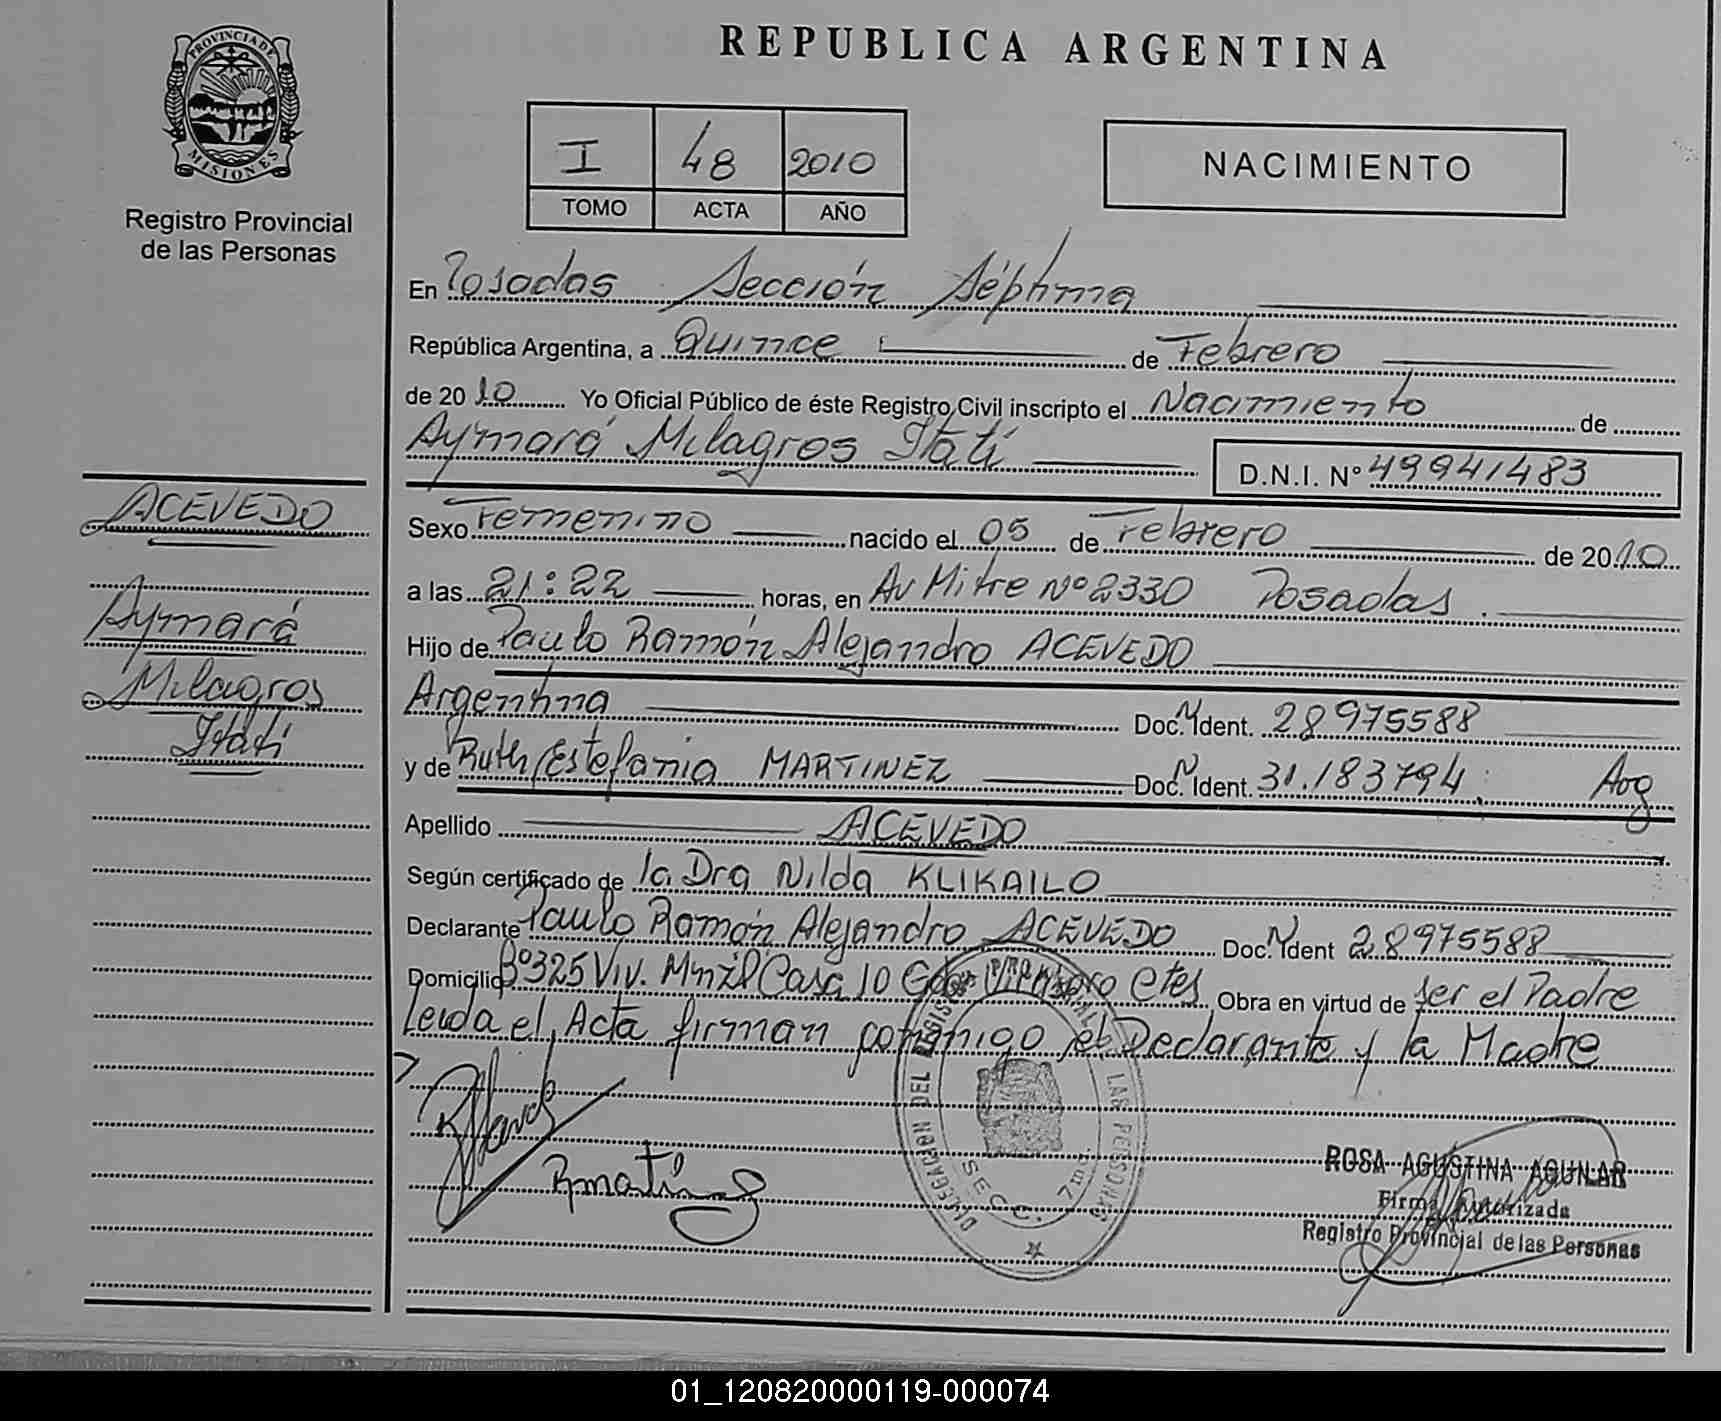 REPUBLICA ARGENTINA
PROVINCIA DE
MISIONES
Registro Provincial
de las Personas
I 48 2010
TOMO ACTA AÑO
NACIMIENTO
En Posadas Sección Séptima
República Argentina, a Quince de Febrero
de 2010 Yo Oficial Público de éste Registro Civil inscripto el Nacimiento de
Aymará Milagros Itatí D.N.I. Nº 49941483
ACEVEDO
Aymará
Milagros
Itatí
Sexo Femenino nacido el 05 de Febrero de 2010
a las 21:22 horas, en Av Mitre Nº 2330 Posadas.
Hijo de Paulo Ramón Alejandro ACEVEDO
Argentina Doc. N Ident. 28975588
y de Ruth Estefania MARTINEZ Doc. N Ident. 31.183794 Arg
Apellido ACEVEDO
Según certificado de la Dra Nilda KLIKAILO
Declarante Paulo Ramón Alejandro ACEVEDO Doc. N Ident 28975588
Domicilio Bº 325 Viv. Casa 10 Gdor Ctes Obra en virtud de ser el Padre
Leida el Acta firman conmigo el Declarante y la Madre
DELEGACION DEL REGISTRO LAS PERSONAS
SECC. 7ma.
ROSA AGUSTINA AGUILAR
Firma Autorizada
Registro Provincial de las Personas
01_120820000119-000074